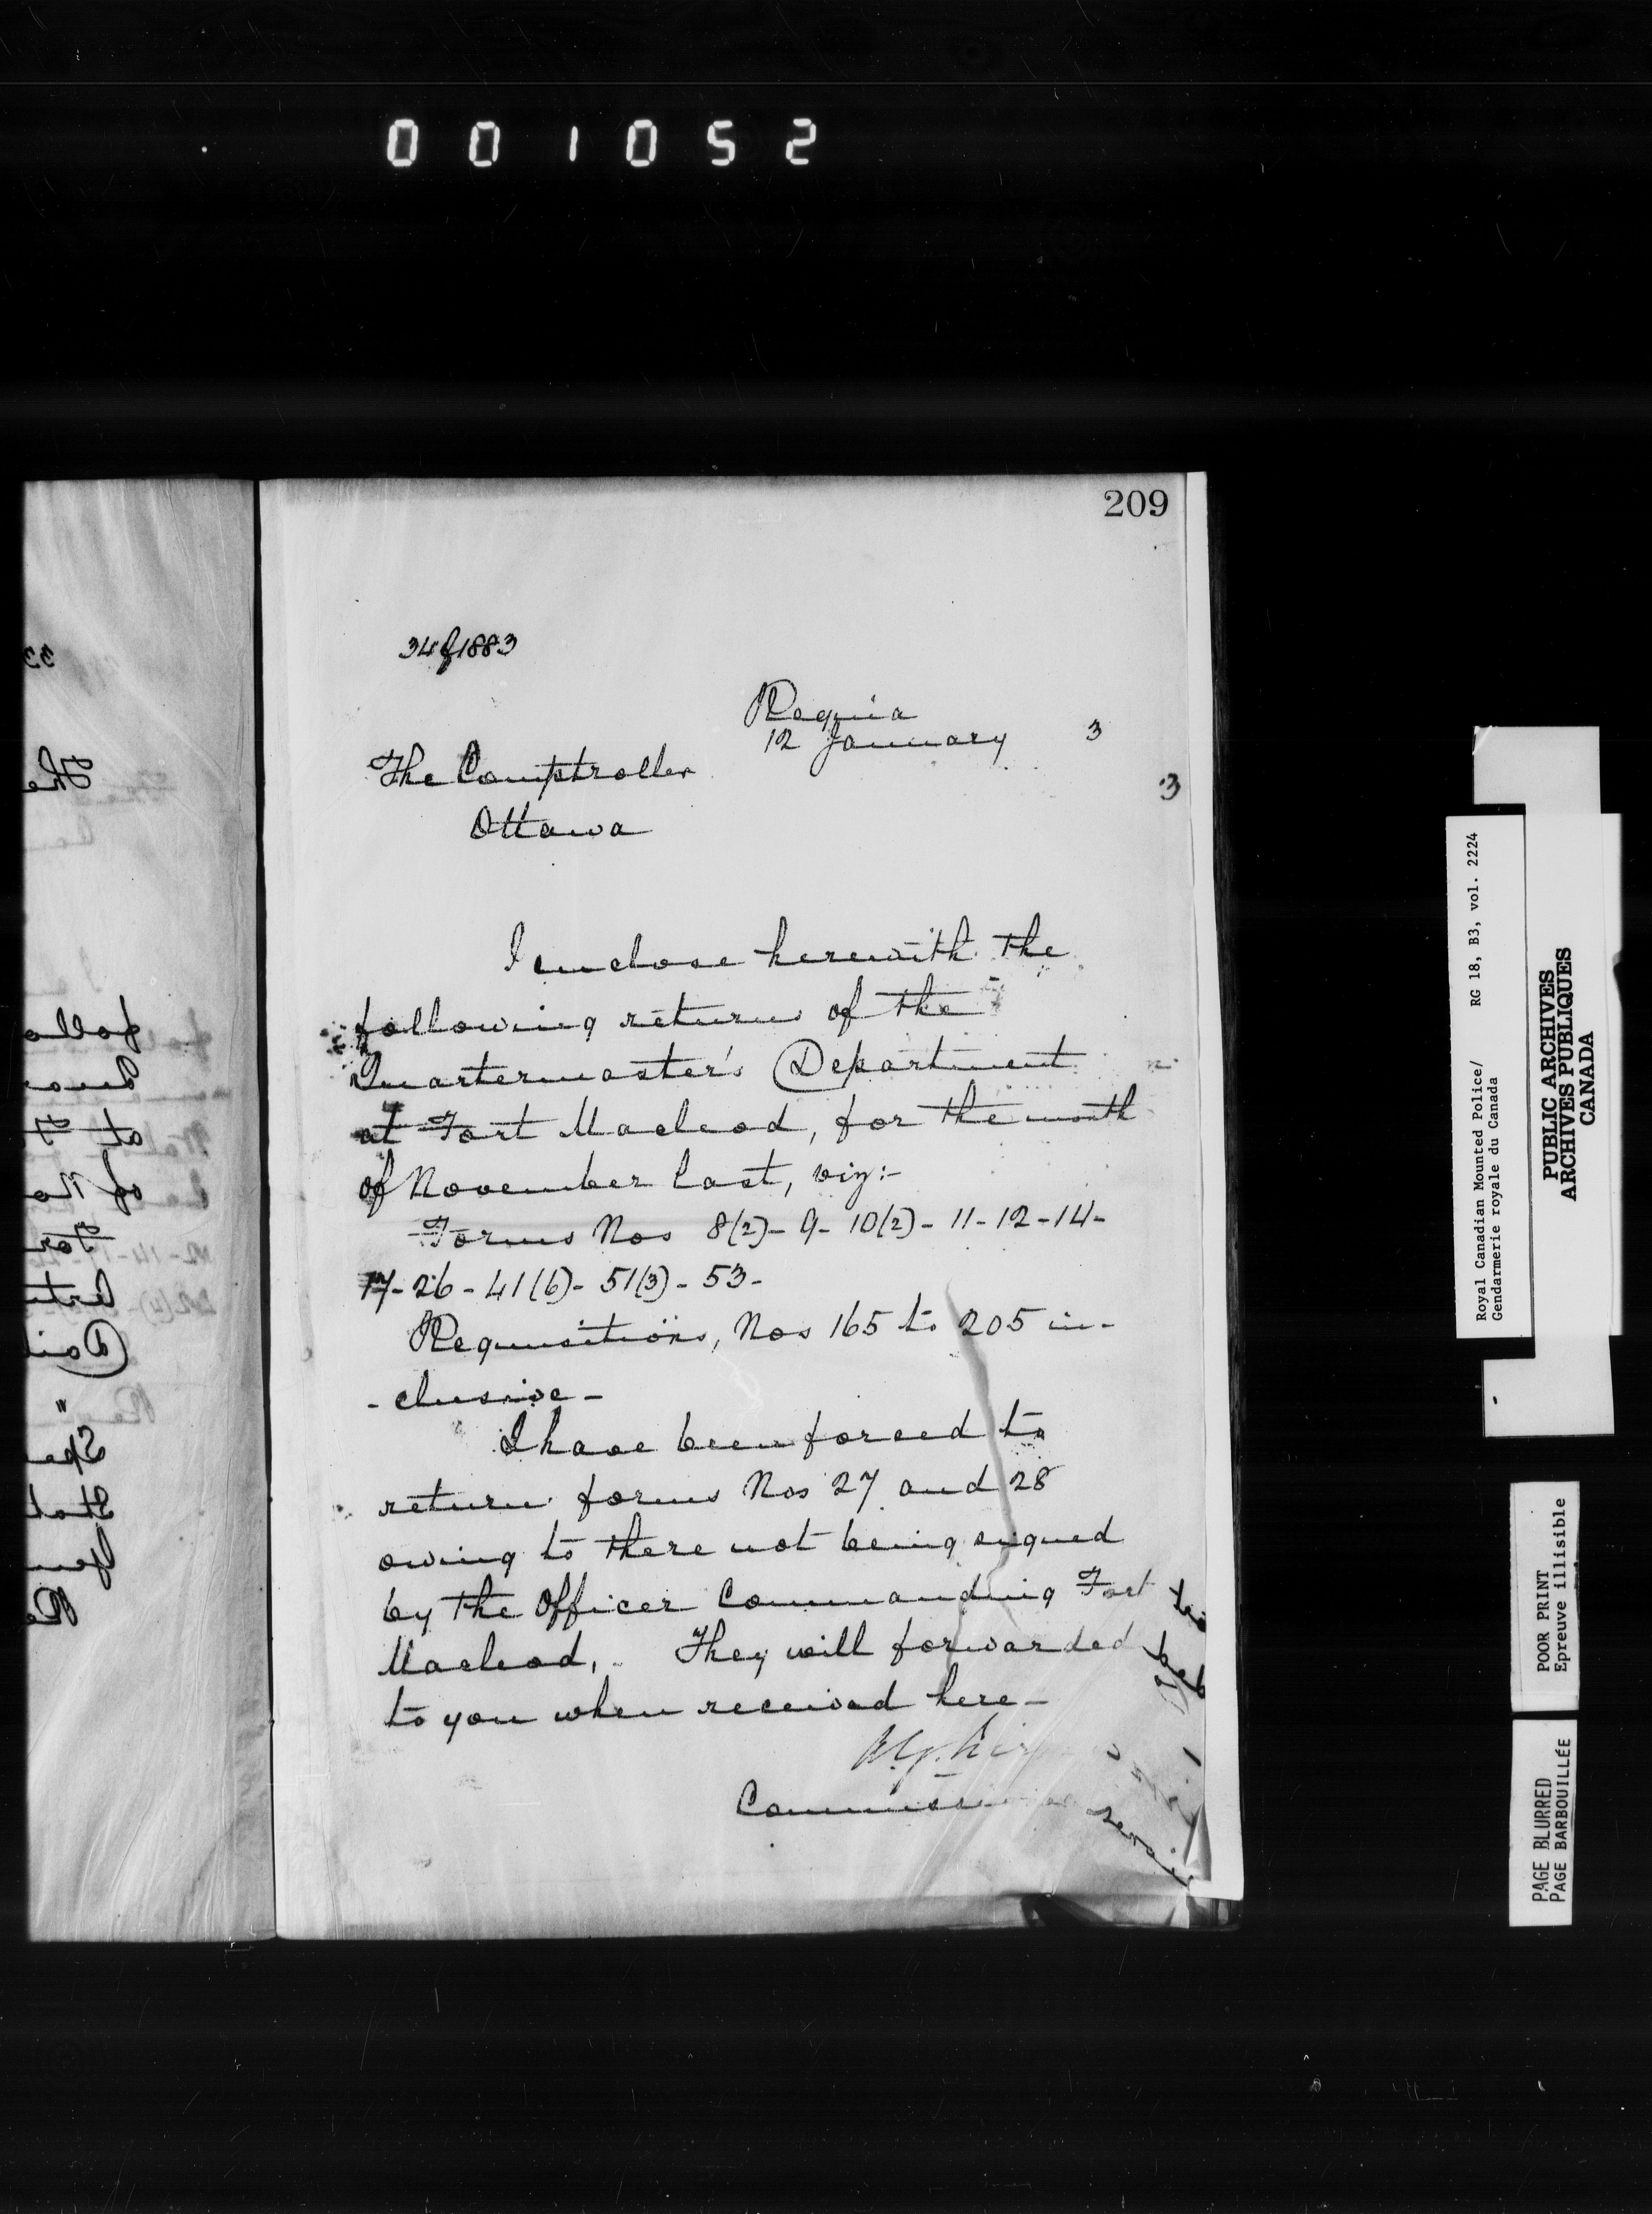 001052
209
34 of 1883
Regina
12 January 3
3
The Comptroller
Ottawa
I enclose herewith the
following returns of the
Quartermaster's Department
at Fort Macleod, for the month
of November last, viz:-
Forms Nos 8(2)- 9- 10(2)- 11- 12- 14-
17- 26- 41(6)- 51(3)- 53-
Requisitions, Nos 165 to 205 in-
-clusive-
I have been forced to
return forms Nos 27 and 28
owing to there not being signed
by the Officer Commanding Fort
Macleod. They will forwarded
to you when received here-
Commissioner
Royal Canadian Mounted Police/ RG 18, B3, vol. 2224
Gendarmerie royale du Canada
PUBLIC ARCHIVES
ARCHIVES PUBLIQUES
CANADA
POOR PRINT
Epreuve illisible
PAGE BLURRED
PAGE BARBOUILLÉE